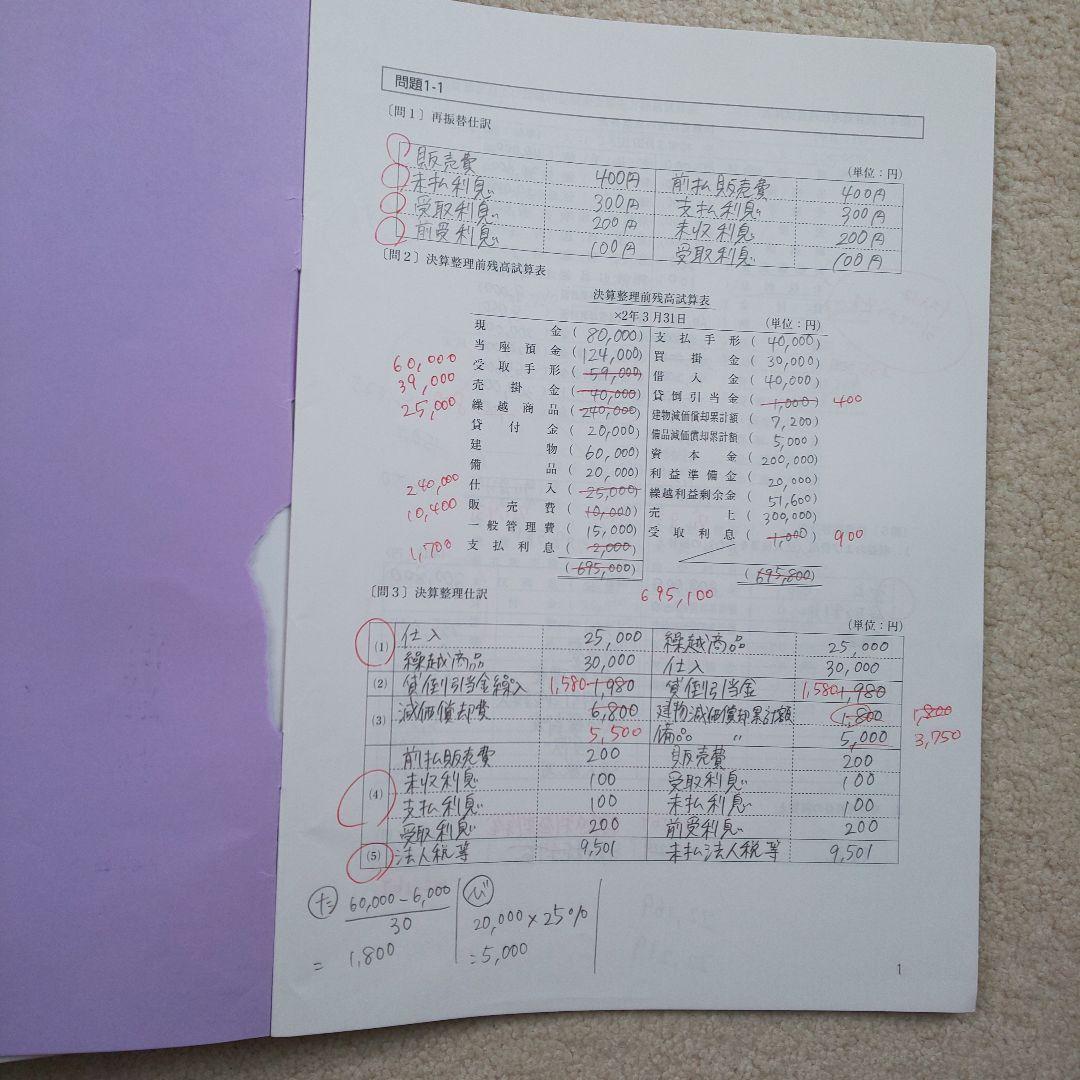 問題1-1
〔問1〕再振替仕訳
(単位：円)
販売費 400円 前払販売費 400円
未払利息 300円 支払利息 300円
受取利息 200円 未収利息 200円
前受利息 100円 受取利息 100円
〔問2〕決算整理前残高試算表
決算整理前残高試算表
×2年3月31日 (単位：円)
現金 (80,000) 支払手形 (40,000)
当座預金 (124,000) 買掛金 (30,000)
60,000 受取手形 (59,000) 借入金 (40,000)
39,000 売掛金 (40,000) 貸倒引当金 (1,000) 400
25,000 繰越商品 (240,000) 建物減価償却累計額 (7,200)
貸付金 (20,000) 備品減価償却累計額 (5,000)
建物 (60,000) 資本金 (200,000)
備品 (20,000) 利益準備金 (20,000)
240,000 仕入 (25,000) 繰越利益剰余金 (51,600)
10,400 販売費 (10,000) 売上 (300,000)
一般管理費 (15,000) 受取利息 (1,000) 900
1,700 支払利息 (2,000)
(695,000) (695,800)
695,100
〔問3〕決算整理仕訳
(単位：円)
(1) 仕入 25,000 繰越商品 25,000
繰越商品 30,000 仕入 30,000
(2) 貸倒引当金繰入 1,580 1,980 貸倒引当金 1,580 1,980
(3) 減価償却費 6,800 建物減価償却累計額 1,800 1,800
5,500 備品 〃 5,000 3,750
前払販売費 200 販売費 200
未収利息 100 受取利息 100
(4) 支払利息 100 未払利息 100
受取利息 200 前受利息 200
(5) 法人税等 9,501 未払法人税等 9,501
た 60,000-6,000
30
= 1,800
び
20,000×25%
=5,000
1